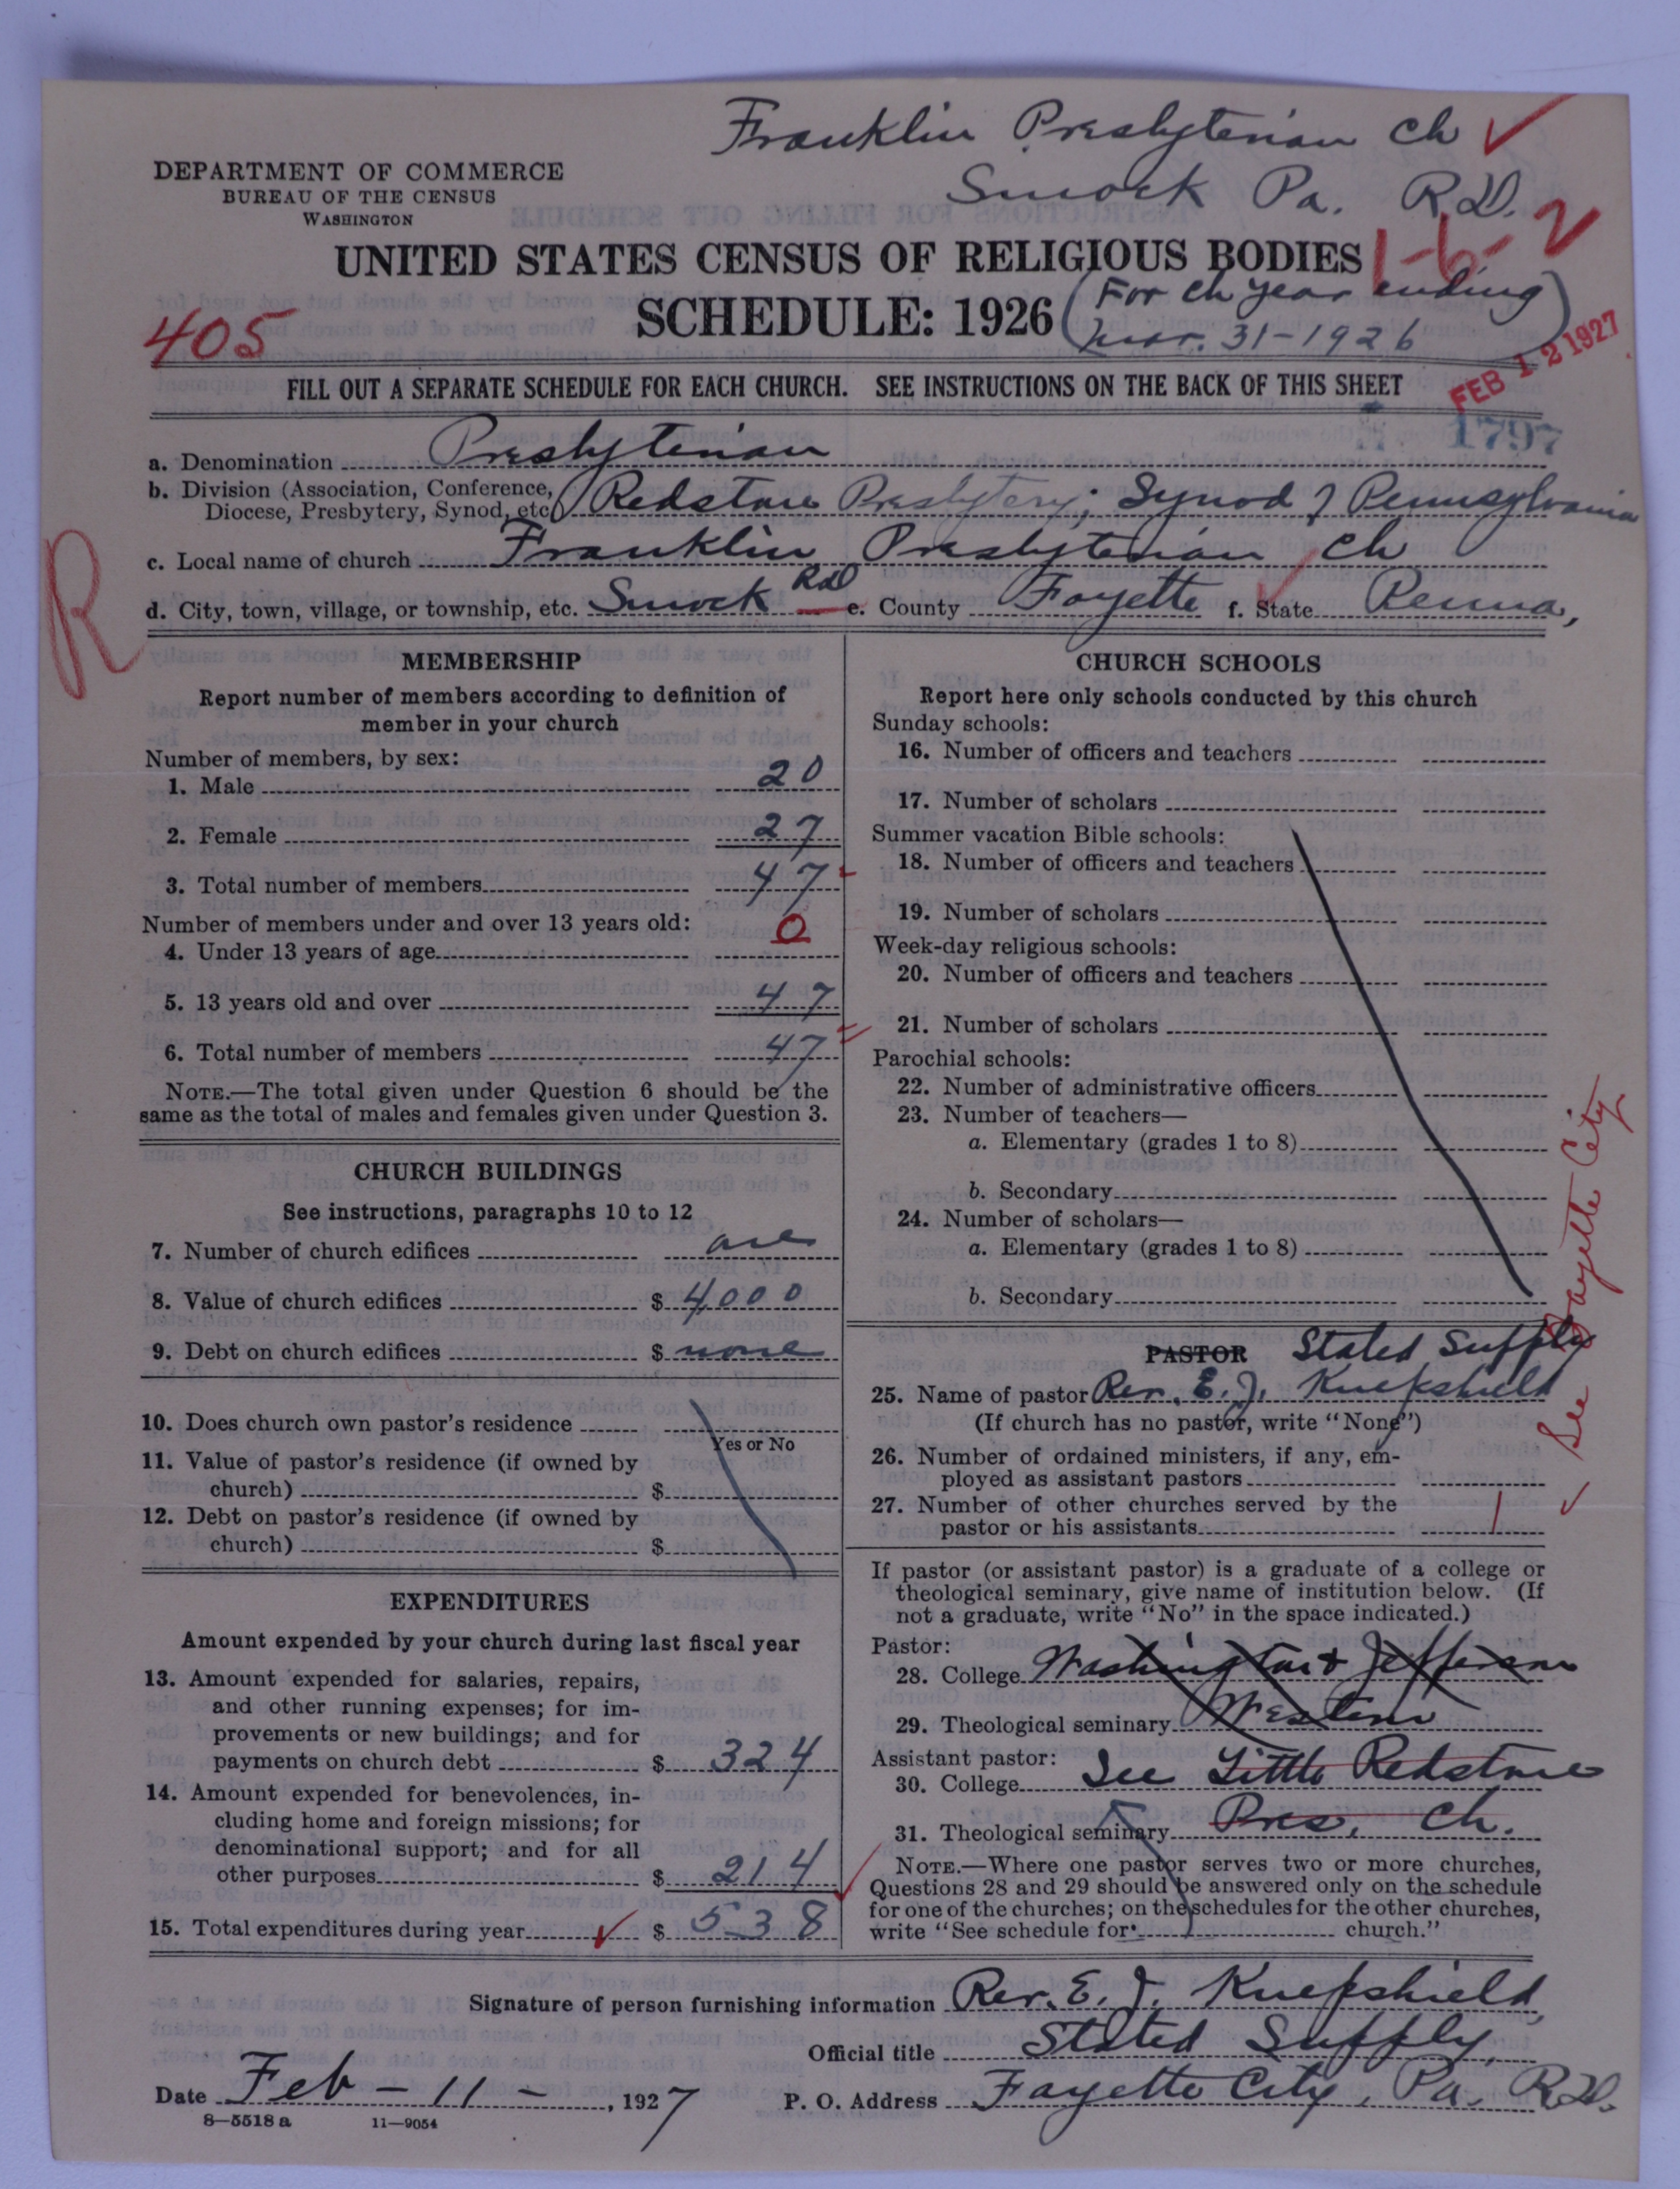 Franklin Presbyterian Ch ✓
Smock Pa. R.D.
DEPARTMENT OF COMMERCE
BUREAU OF THE CENSUS
WASHINGTON
1-6-2
UNITED STATES CENSUS OF RELIGIOUS BODIES
SCHEDULE: 1926 (For ch year ending
Mar. 31-1926)
405
FEB 12 1927
FILL OUT A SEPARATE SCHEDULE FOR EACH CHURCH. SEE INSTRUCTIONS ON THE BACK OF THIS SHEET
1797
a. Denomination Presbyterian
b. Division (Association, Conference, Diocese, Presbytery, Synod, etc.) Redstone Presbytery; Synod of Pennsylvania
c. Local name of church Franklin Presbyterian Ch
d. City, town, village, or township, etc. Smock RD e. County Fayette f. State Penna,
R
MEMBERSHIP
Report number of members according to definition of
member in your church
Number of members, by sex:
1. Male 20
2. Female 27
3. Total number of members 47
Number of members under and over 13 years old:
4. Under 13 years of age 0
5. 13 years old and over 47
6. Total number of members 47
NOTE.—The total given under Question 6 should be the
same as the total of males and females given under Question 3.
CHURCH BUILDINGS
See instructions, paragraphs 10 to 12
7. Number of church edifices one
8. Value of church edifices $ 4000
9. Debt on church edifices $ none
10. Does church own pastor's residence
Yes or No
11. Value of pastor's residence (if owned by
church) $
12. Debt on pastor's residence (if owned by
church) $
EXPENDITURES
Amount expended by your church during last fiscal year
13. Amount expended for salaries, repairs,
and other running expenses; for im-
provements or new buildings; and for
payments on church debt $ 324
14. Amount expended for benevolences, in-
cluding home and foreign missions; for
denominational support; and for all
other purposes $ 214
15. Total expenditures during year ✓ $ 538
CHURCH SCHOOLS
Report here only schools conducted by this church
Sunday schools:
16. Number of officers and teachers
17. Number of scholars
Summer vacation Bible schools:
18. Number of officers and teachers
19. Number of scholars
Week-day religious schools:
20. Number of officers and teachers
21. Number of scholars
Parochial schools:
22. Number of administrative officers
23. Number of teachers—
a. Elementary (grades 1 to 8)
b. Secondary
24. Number of scholars—
a. Elementary (grades 1 to 8)
b. Secondary
PASTOR Stated Supply
25. Name of pastor Rev. E. J. Knepshield
(If church has no pastor, write "None")
26. Number of ordained ministers, if any, em-
ployed as assistant pastors
27. Number of other churches served by the
pastor or his assistants 1
✓ See Fayette City
If pastor (or assistant pastor) is a graduate of a college or
theological seminary, give name of institution below. (If
not a graduate, write "No" in the space indicated.)
Pastor:
28. College Washington & Jefferson
29. Theological seminary Western
Assistant pastor:
30. College See Little Redstone
31. Theological seminary Pres. Ch.
NOTE.—Where one pastor serves two or more churches,
Questions 28 and 29 should be answered only on the schedule
for one of the churches; on the schedules for the other churches,
write "See schedule for church."
Signature of person furnishing information Rev. E. J. Knepshield,
Official title Stated Supply,
Date Feb - 11 - , 1927 P. O. Address Fayette City, Pa. R.D.
8—5518 a 11—9054